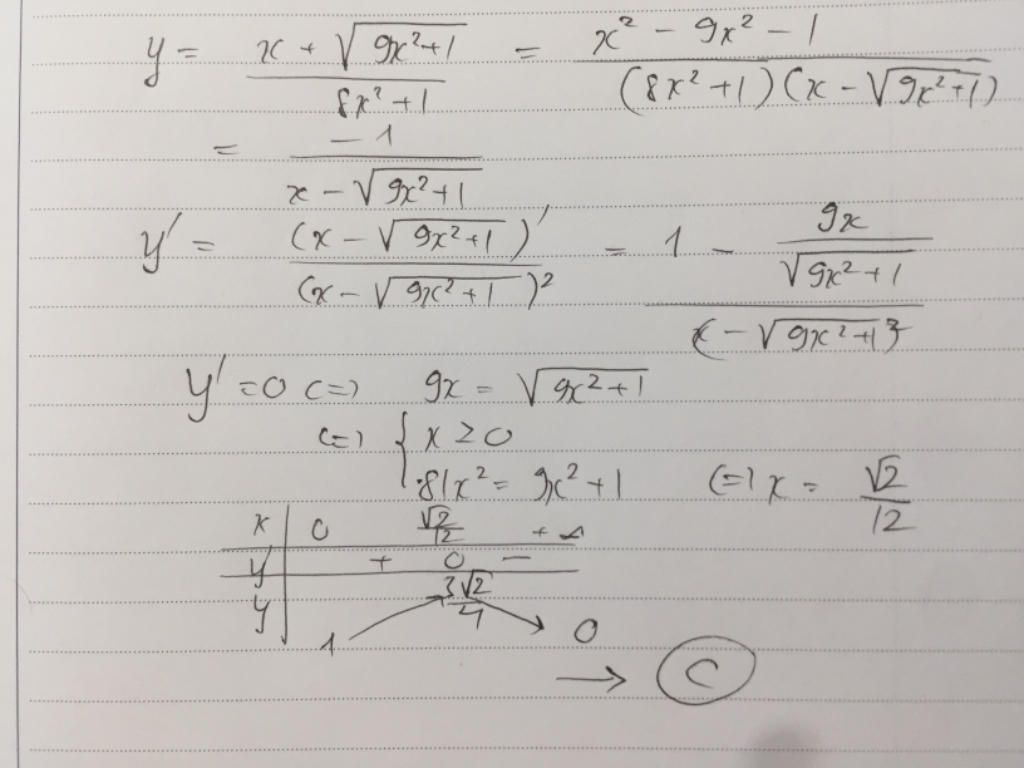 y = (x + √(9x²+1)) / (8x²+1) = (x² - 9x² - 1) / ((8x²+1)(x - √(9x²+1)))
= -1 / (x - √(9x²+1))
y' = (x - √(9x²+1))' / (x - √(9x²+1))² = (1 - 9x/√(9x²+1)) / (x - √(9x²+1))²
y' = 0 <=> 9x = √(9x²+1)
<=> { x ≥ 0
81x² = 9x²+1 <=> x = √2/12
x | 0 √2/12 +∞
y' | + 0 -
y | 1 ↗ 3√2/4 ↘ 0
→ C